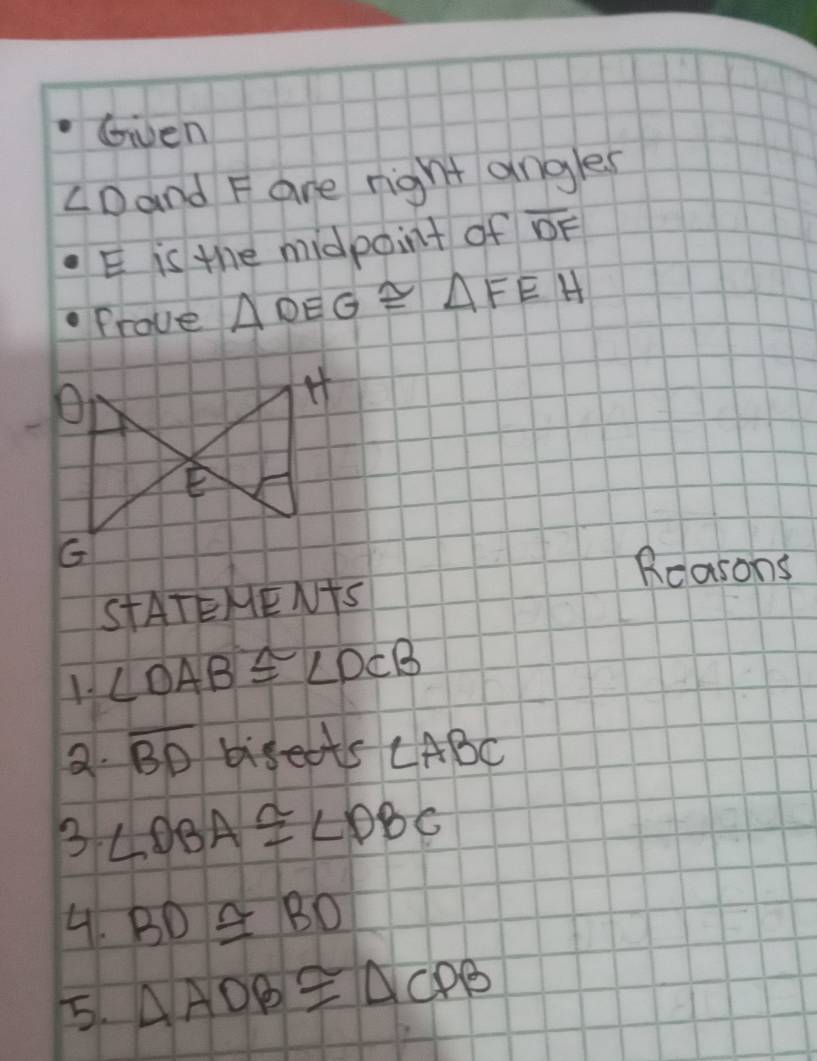 • Given
∠D and F are right angles
• E is the midpoint of D̅F̅
• Prove △DEG ≅ △FEH
D
H
E
G
STATEMENTS
Reasons
1. ∠DAB ≅ ∠DCB
2. B̅D̅ bisects ∠ABC
3. ∠DBA ≅ ∠DBC
4. BD ≅ BD
5. △ADB ≅ △CDB